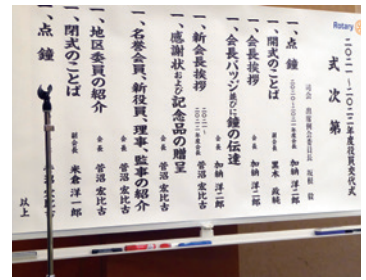 Rotary
二〇二一〜二〇二二年度役員交代式
式次第
司会 出席例会委員長 坂根 毅
一、点鐘 二〇二〇〜二〇二一年度会長 加納 洋二郎
一、開式のことば 副会長 黒木 政純
一、会長挨拶 会長 加納 洋二郎
一、会長バッジ並びに鐘の伝達 加納 洋二郎
一、新会長挨拶 二〇二一〜二〇二二年度会長 菅沼 宏比古
一、感謝状および記念品の贈呈 会長 菅沼 宏比古
一、名誉会員、新役員、理事、監事の紹介 会長 菅沼 宏比古
一、地区委員の紹介 会長 菅沼 宏比古
一、閉式のことば 副会長 米倉 洋一郎
一、点鐘 宏比古
以上